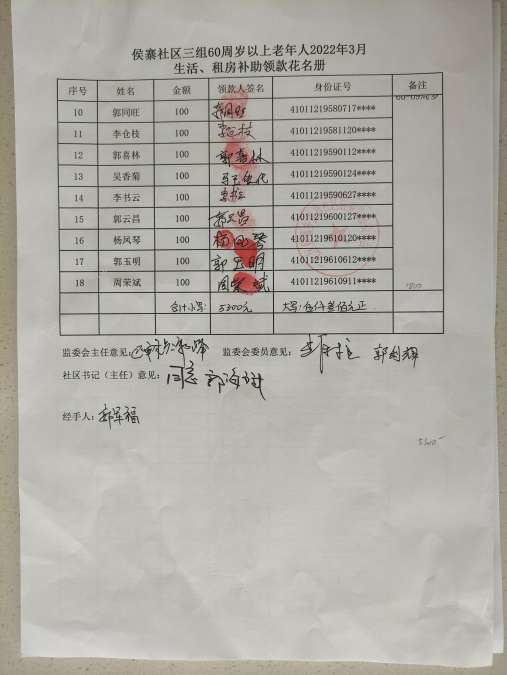 侯寨社区三组60周岁以上老年人2022年3月
生活、租房补助领款花名册
序号 姓名 金额 领款人签名 身份证号 备注
10 郭同旺 100 41011219580717****
11 李仓枝 100 41011219581120****
12 郭喜林 100 郭喜林 41011219590112****
13 吴香菊 100 41011219590124****
14 李书云 100 41011219590627****
15 郭云昌 100 郭云昌 41011219600127****
16 杨凤琴 100 杨凤琴 41011219610120****
17 郭玉明 100 郭玉明 41011219610612****
18 周荣斌 100 周荣斌 41011219610911****
合计小写: 5300元 大写: 伍仟叁佰元正
监委会主任意见: 监委会委员意见:
社区书记（主任）意见: 同意
经手人:
5300